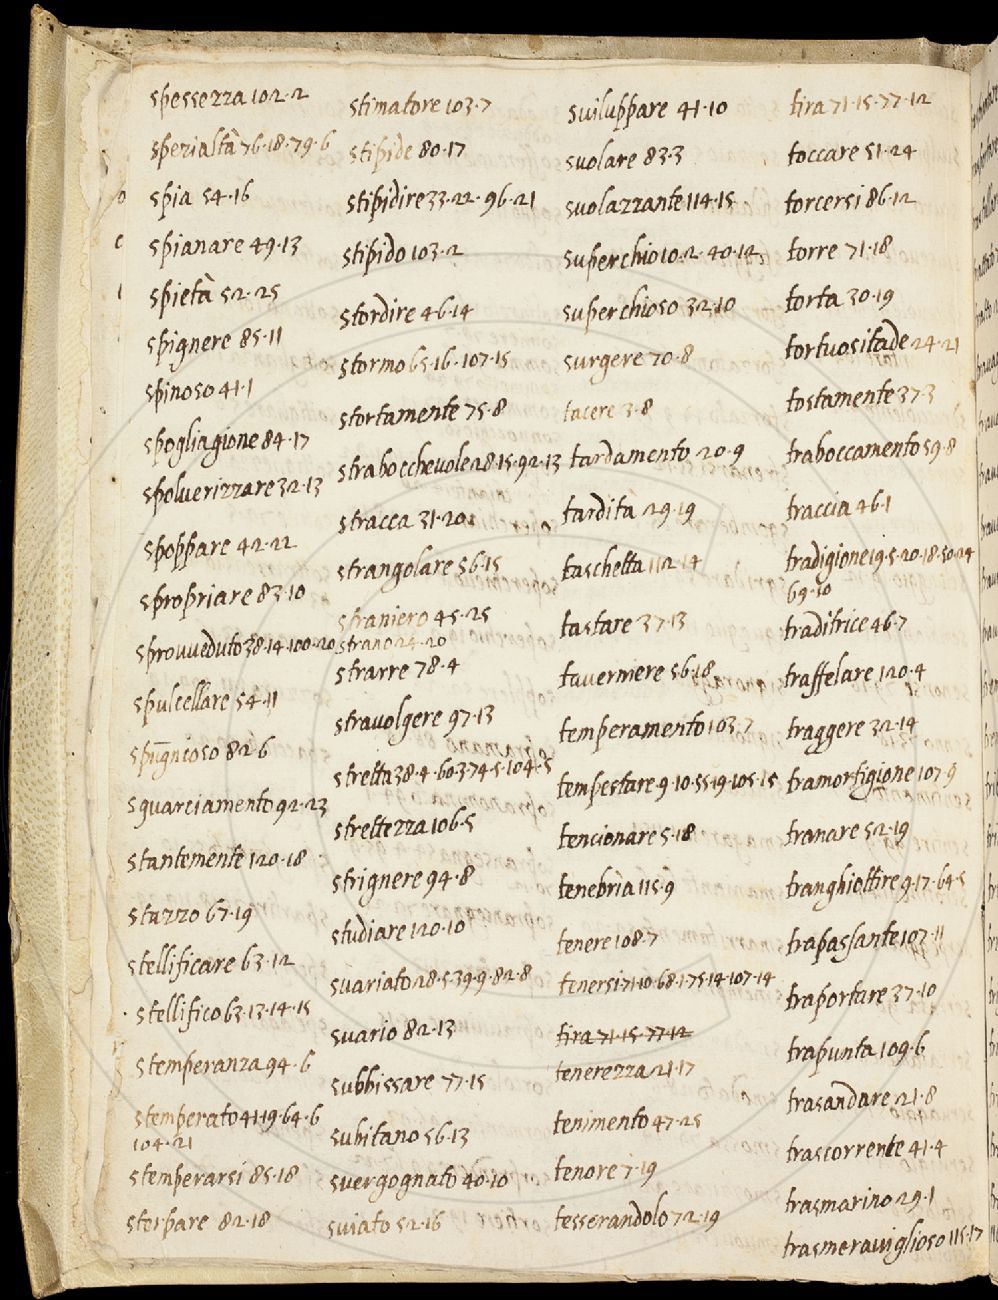 spessezza 102·2
spezialtà 76·18·79·6
spia 54·16
spianare 49·13
spietà 52·25
spignere 85·11
spinoso 41·1
spogliagione 84·17
spoluerizzare 32·13
spoppare 42·22
spropriare 83·10
sprouueduto 38·14·100·20
spulcellare 54·11
spūgnioso 82·6
squarciamento 92·23
stantemente 120·18
stazzo 67·19
stellificare 63·12
stellifico 63·13·14·15
stemperanza 94·6
stemperato 41·19·64·6
104·21
stemperarsi 85·18
sterpare 82·18
stimatore 103·7
stipide 80·17
stipidire 33·22·96·21
stipido 103·2
stordire 46·14
stormo 65·16·107·15
stortamente 75·8
straboccheuole 28·15·92·13
stracca 31·20
strangolare 56·15
straniero 45·25
strano 24·20
strarre 78·4
strauolgere 97·13
stretta 38·4·60·3·74·5·104·5
strettezza 106·5
strignere 94·8
studiare 120·10
suariato 28·5·39·9·82·8
suario 82·13
subbissare 77·15
subitano 56·13
suergognato 40·10
suiato 52·16
suiluppare 41·10
suolare 83·3
suolazzante 114·15
superchio 10·2·40·12
superchioso 32·10
surgere 70·8
tacere 3·8
tardamento 20·9
tardità 29·19
taschetta 112·14
tastare 37·13
tauerniere 56·18
temperamento 103·7
tempestare 9·10·55·19·105·15
tencionare 5·18
tenebria 115·9
tenere 108·7
tenersi 71·10·68·1·75·14·107·14
tira 71·15·77·12
tenerezza 21·17
tenimento 47·25
tenore 7·19
tesserandolo 72·19
tira 71·15·77·12
toccare 51·24
torcersi 86·12
torre 71·18
torta 30·19
tortuositade 24·21
tostamente 37·3
traboccamento 59·8
traccia 46·1
tradigione 19·5·20·18·50·24
69·10
traditrice 46·7
traffelare 120·4
traggere 32·14
tramortigione 107·9
tranare 52·19
tranghiottire 9·17·64·5
trapassante 107·11
traportare 37·10
trapunta 109·6
trasandare 21·8
trascorrente 41·4
trasmarino 29·1
trasmerauiglioso 115·17